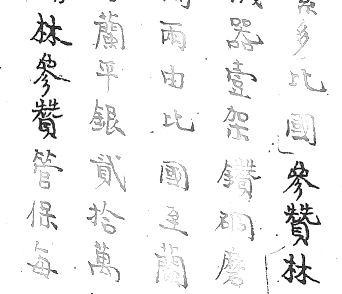 多比國參贊林
器壹架鑽硐磨
兩由比國至蘭
蘭平銀貳拾萬
林參贊管保每